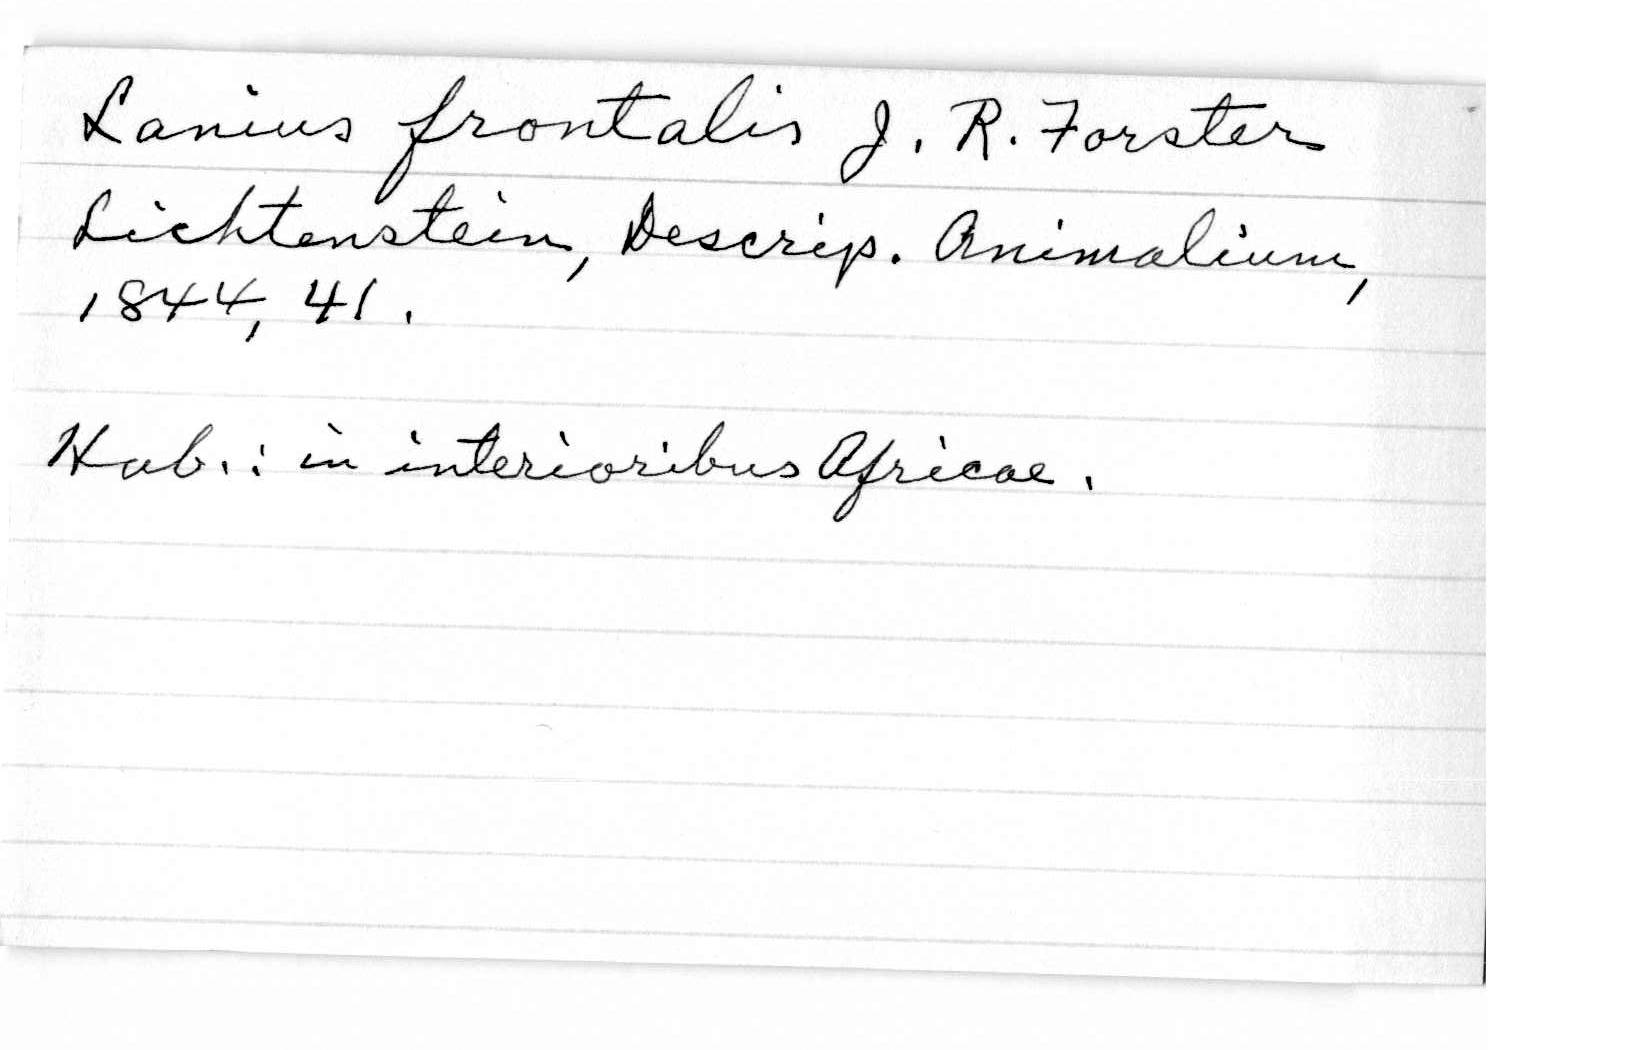 Lanius frontalis J. R. Forster
Lichtenstein, Descrip. Animalium,
1844, 41.
Hab.: in interioribus Africae.